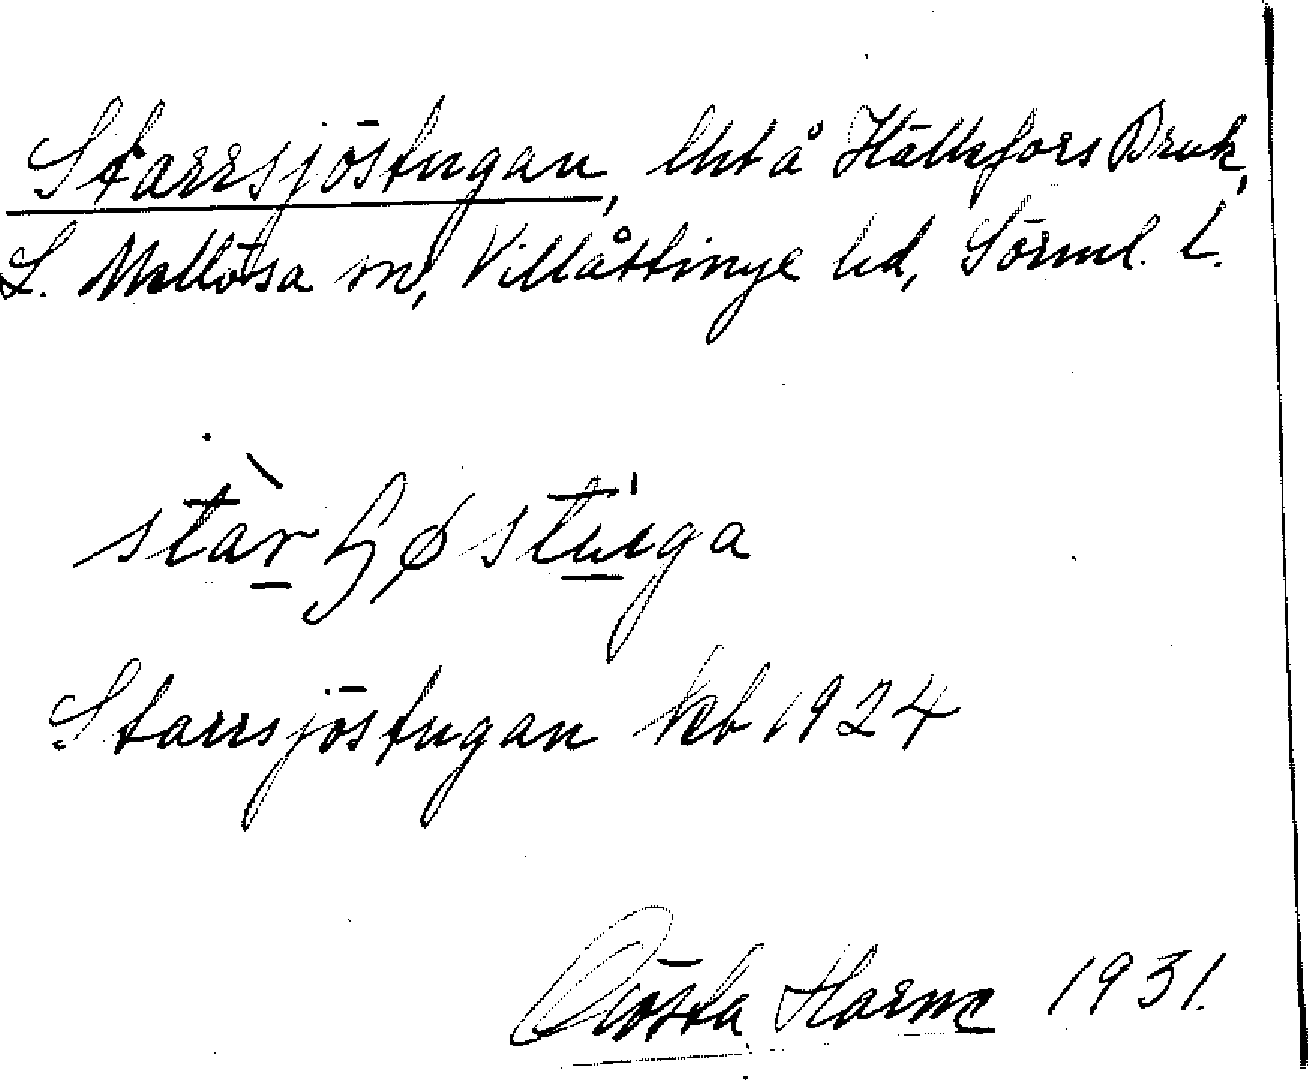 Starrsjöstugan, lht å Hällefors Bruk,
L. Mellösa sn, Villåttinge hd,Örml. L.
Starrsjöstugan kb 1924
Gösta Harme 1931.